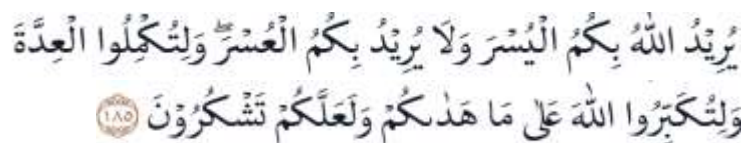 يُرِيْدُ اللّٰهُ بِكُمُ الْيُسْرَ وَلَا يُرِيْدُ بِكُمُ الْعُسْرَ ۖ وَلِتُكْمِلُوا الْعِدَّةَ
وَلِتُكَبِّرُوا اللّٰهَ عَلٰى مَا هَدٰىكُمْ وَلَعَلَّكُمْ تَشْكُرُوْنَ ١٨٥